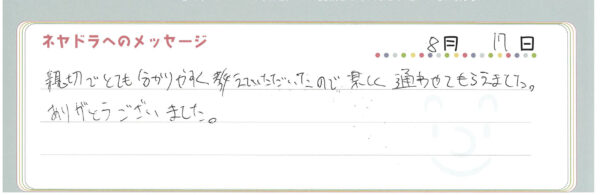 ネヤドラへのメッセージ
8月 17日
親切でとても分かりやすく教えていただいたので楽しく通わせてもらえました。
ありがとうございました。